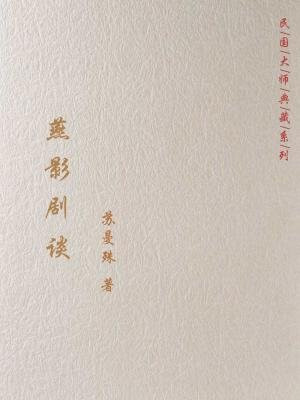 民国大师典藏系列
燕影剧谈
苏曼殊 著